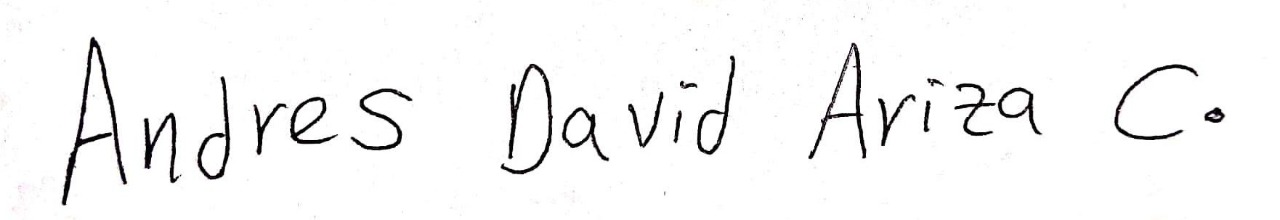 Andres David Ariza C.